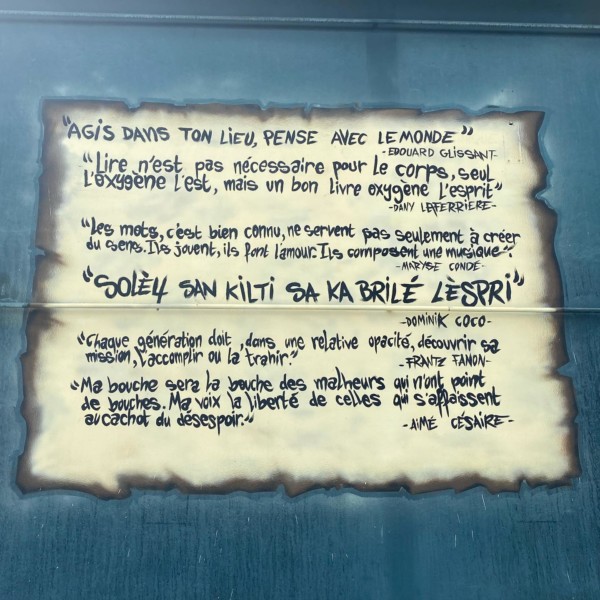 "AGIS DANS TON LIEU, PENSE AVEC LE MONDE"
-EDOUARD GLISSANT-
"Lire n'est pas nécessaire pour le corps, seul
l'oxygène l'est, mais un bon livre oxygène l'esprit"
-DANY LAFERRIERE-
"Les mots, c'est bien connu, ne servent pas seulement à créer
du sens. Ils jouent, ils font l'amour. Ils composent une musique".
-MARYSE CONDÉ-
"SOLÈY SAN KILTI SA KA BRILÉ LÈSPRI"
-DOMINIK COCO-
"Chaque génération doit, dans une relative opacité, découvrir sa
mission, l'accomplir ou la trahir."
-FRANTZ FANON-
"Ma bouche sera la bouche des malheurs qui n'ont point
de bouches. Ma voix la liberté de celles qui s'affaissent
au cachot du désespoir."
-AIMÉ CÉSAIRE-